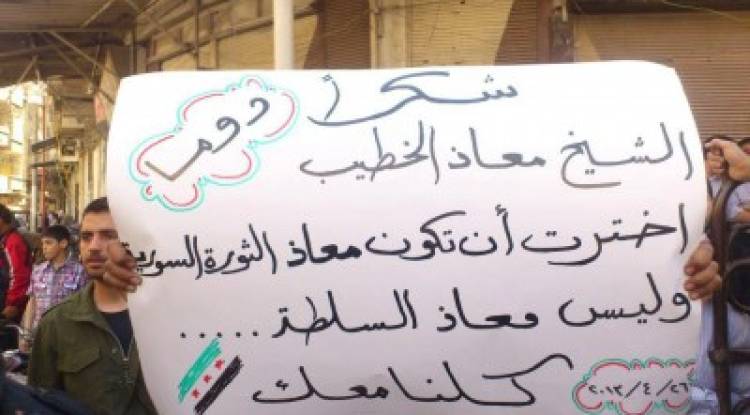 شكراً
دوما
الشيخ معاذ الخطيب
اخترت أن تكون معاذ الثورة السورية
وليس معاذ السلطة .....
كلنا معك
٢٠١٣/٤/٢٦